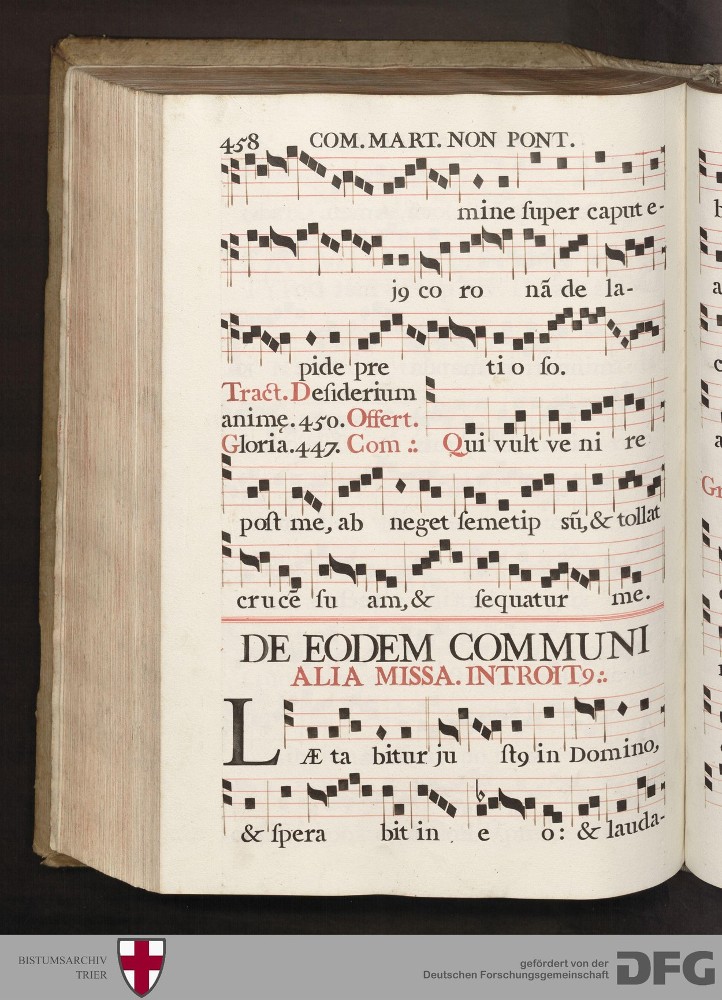 458 COM. MART. NON PONT.
mine ſuper caput e-
j9 co ro nã de la-
pide pre ti o ſo.
Tract. Deſiderium
animę. 450. Offert.
Gloria. 447. Com .: Qui vult ve ni re
poſt me, ab neget ſemetip sũ, & tollat
crucẽ ſu am, & ſequatur me.
DE EODEM COMMUNI
ALIA MISSA. INTROIT9.:.
LÆ ta bitur ju ſt9 in Domino,
& ſpera bit in e o: & lauda-
BISTUMSARCHIV
TRIER
gefördert von der
Deutschen Forschungsgemeinschaft
DFG